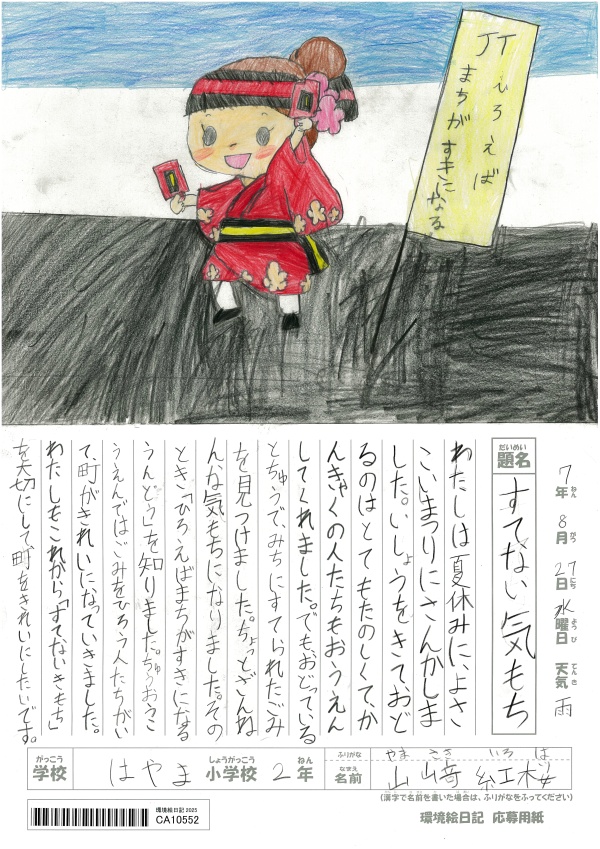 JT
ひろえば
まちが
すきになる
7年8月27日水曜日 天気 雨
ねん がつ にち ようび てんき
だいめい
題名 すてない気もち
わたしは夏休みに、よさ
こいまつりにさんかしま
した。いしょうをきて、おど
るのはとてもたのしくて、か
んきゃくの人たちもおうえん
してくれました。でも、おどっている
とちゅうで、みちにすてられたごみ
を見つけました。ちょっとざんね
んな気もちになりました。その
とき、「ひろえばまちがすきになる
うんどう」を知りました。ちゅうおうこ
うえんではごみをひろう人たちがい
て、町がきれいになっていきました。
わたしもこれから「すてないきもち」
を大切にして町をきれいにしたいです。
がっこう しょうがっこう ねん
学校 はやま 小学校 2年
ふりがな やま さき いろ は
なまえ
名前 山﨑 紅桜
(漢字で名前を書いた場合は、ふりがなをふってください)
環境絵日記 2025
CA10552
環境絵日記 応募用紙